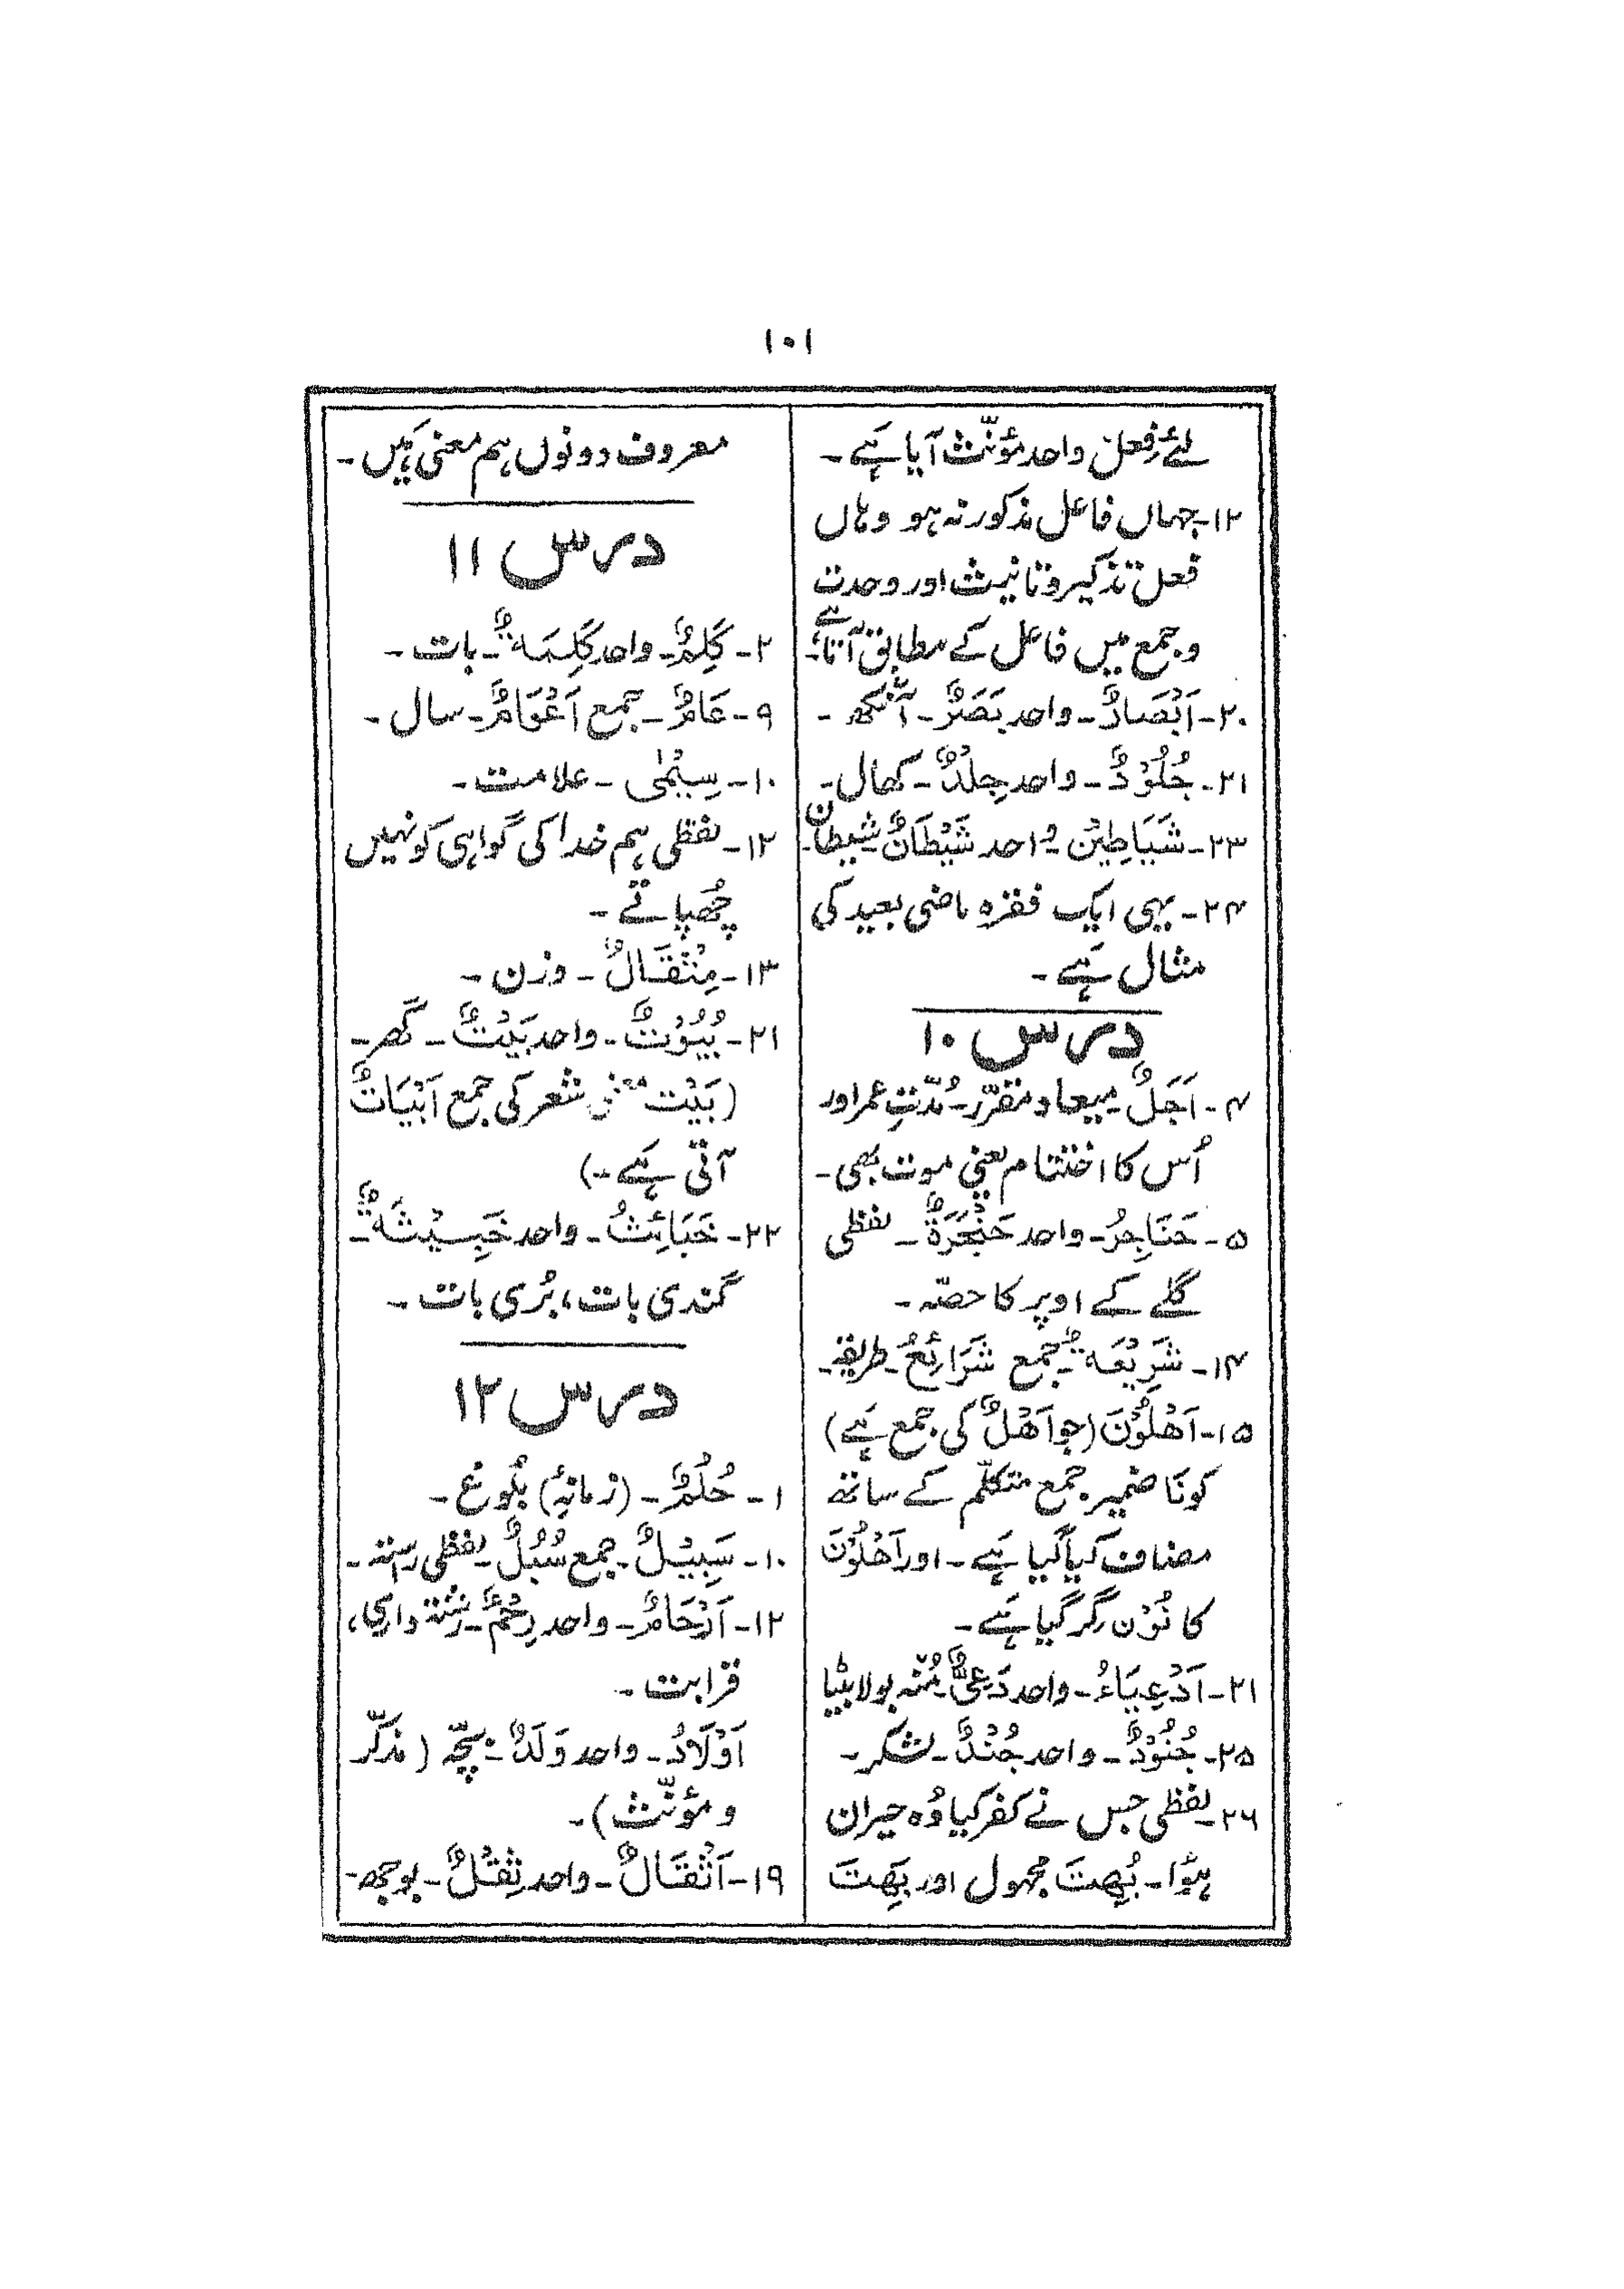 ۱۰۱
لئے فِعل واحد مؤنّث آیا ہَے ۔
۱۲۔ جہاں فاعل مذکور نہ ہو وہاں
فعل تذکیر و تانیث اور وحدت
و جمع میں فاعل کے مطابق آتا ہے؛۔
۲۰۔ اَبْصَارٌ۔ واحد بَصَرٌ۔ آنکھ ۔
۲۱۔ جُلُوْدٌ۔ واحد جِلْدٌ۔ کھال۔
۲۳۔ شَیَاطِیْنُ۔ واحد شَیْطَانٌ۔ شیطان۔
۲۴۔ یہی ایک فقرہ ماضی بعید کی
مثال ہَے ۔
درس ۱۰
۴۔ اَجَلٌ۔ میعاد مقرّر۔ مُدّتِ عمر اور
اُس کا اختتام یعنی موت بھی۔
۵۔ حَنَاجِرُ۔ واحد حَنْجَرَةٌ۔ لفظی
گلے کے اوپر کا حصّہ ۔
۱۴۔ شَرِیْعَةٌ۔ جمع شَرَائِعُ۔ طریقہ۔
۱۵۔ اَھْلُوْنَ (جو اَھْلٌ کی جمع ہَے)
کو نَا ضمیر جمع متکلّم کے ساتھ
مضاف کیا گیا ہَے۔ اور اَھْلُوْنَ
کا نُوْن گِر گیا ہَے ۔
۲۱۔ اَدْعِیَاءُ۔ واحد دَعِیٌّ۔ مُنہ بولا بیٹا
۲۵۔ جُنُوْدٌ۔ واحد جُنْدٌ۔ لشکر ۔
۲۶۔ لفظی جس نے کفر کیا وُہ حیران
ہؤا۔ بُھِتَ مجہول اور بَھِتَ
معروف دونوں ہم معنی ہَیں۔
درس ۱۱
۲۔ کَلِمٌ۔ واحد کَلِمَةٌ۔ بات ۔
۹۔ عَامٌ۔ جمع اَعْوَامٌ۔ سال ۔
۱۰۔ سِیْمٰی ۔ علامت ۔
۱۲۔ لفظی ہم خدا کی گواہی کو نہیں
چُھپاتے ۔
۱۳۔ مِثْقَالٌ ۔ وزن ۔
۲۱۔ بُیُوْتٌ۔ واحد بَیْتٌ ۔ گھر۔
(بَیْت شعر کی جمع اَبْیَاتٌ
آتی ہَے۔)
۲۲۔ خَبَائِثُ۔ واحد خَبِیْثَةٌ۔
گندی بات، بُری بات ۔
درس ۱۲
۱۔ حُلُمٌ ۔ (زمانۂ) بُلوغ ۔
۱۰۔ سَبِیْلٌ۔ جمع سُبُلٌ۔ لفظی رستہ ۔
۱۲۔ اَرْحَامٌ۔ واحد رِحْمٌ۔ رشتہ داری،
قرابت ۔
اَوْلَادٌ۔ واحد وَلَدٌ۔ بچّہ (مذکّر
و مؤنّث)۔
۱۹۔ اَثْقَالٌ۔ واحد ثِقْلٌ۔ بوجھ۔